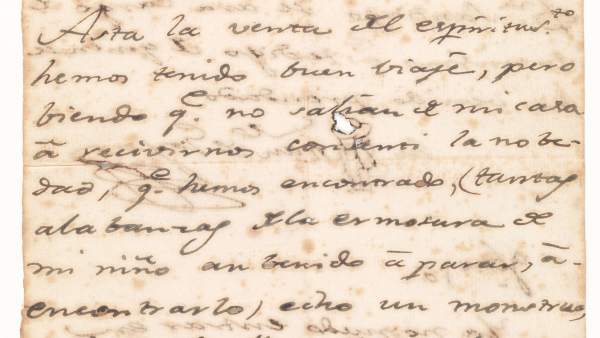 Asta la venta del espiritusto
hemos tenido buen viaje, pero
biendo qe no salian de mi casa
â recivirnos conosenti la nobe-
dad, qe hemos encontrado, (tantas
alabanzas de la ermosura de
mi niño an benido â parar, â-
encontrarlo) echo un monstruo,